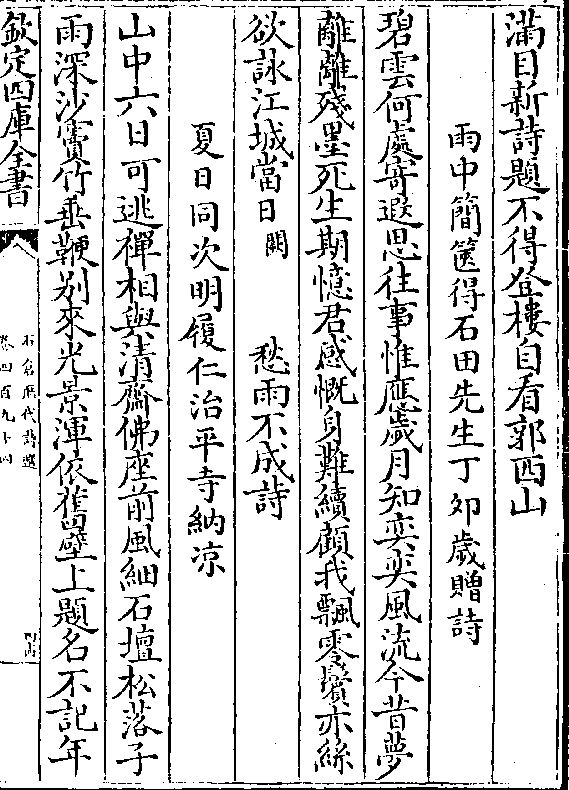 滿目新詩題不得登樓自看郭西山
雨中簡篋得石田先生丁夘歲贈詩
碧雲何處寄遐思往事惟應歲月知奕奕風流今昔夢
離離殘墨死生期憶君感慨身難續顧我飄零鬢亦絲
欲詠江城當日闕　愁雨不成詩
夏日同次明履仁治平寺納凉
山中六日可逃禪相與清齋佛座前風細石壇松落子
雨深沙竇竹垂鞭别來光景渾依舊壁上題名不記年
欽定四庫全書
石倉歴代詩選
卷四百九十四